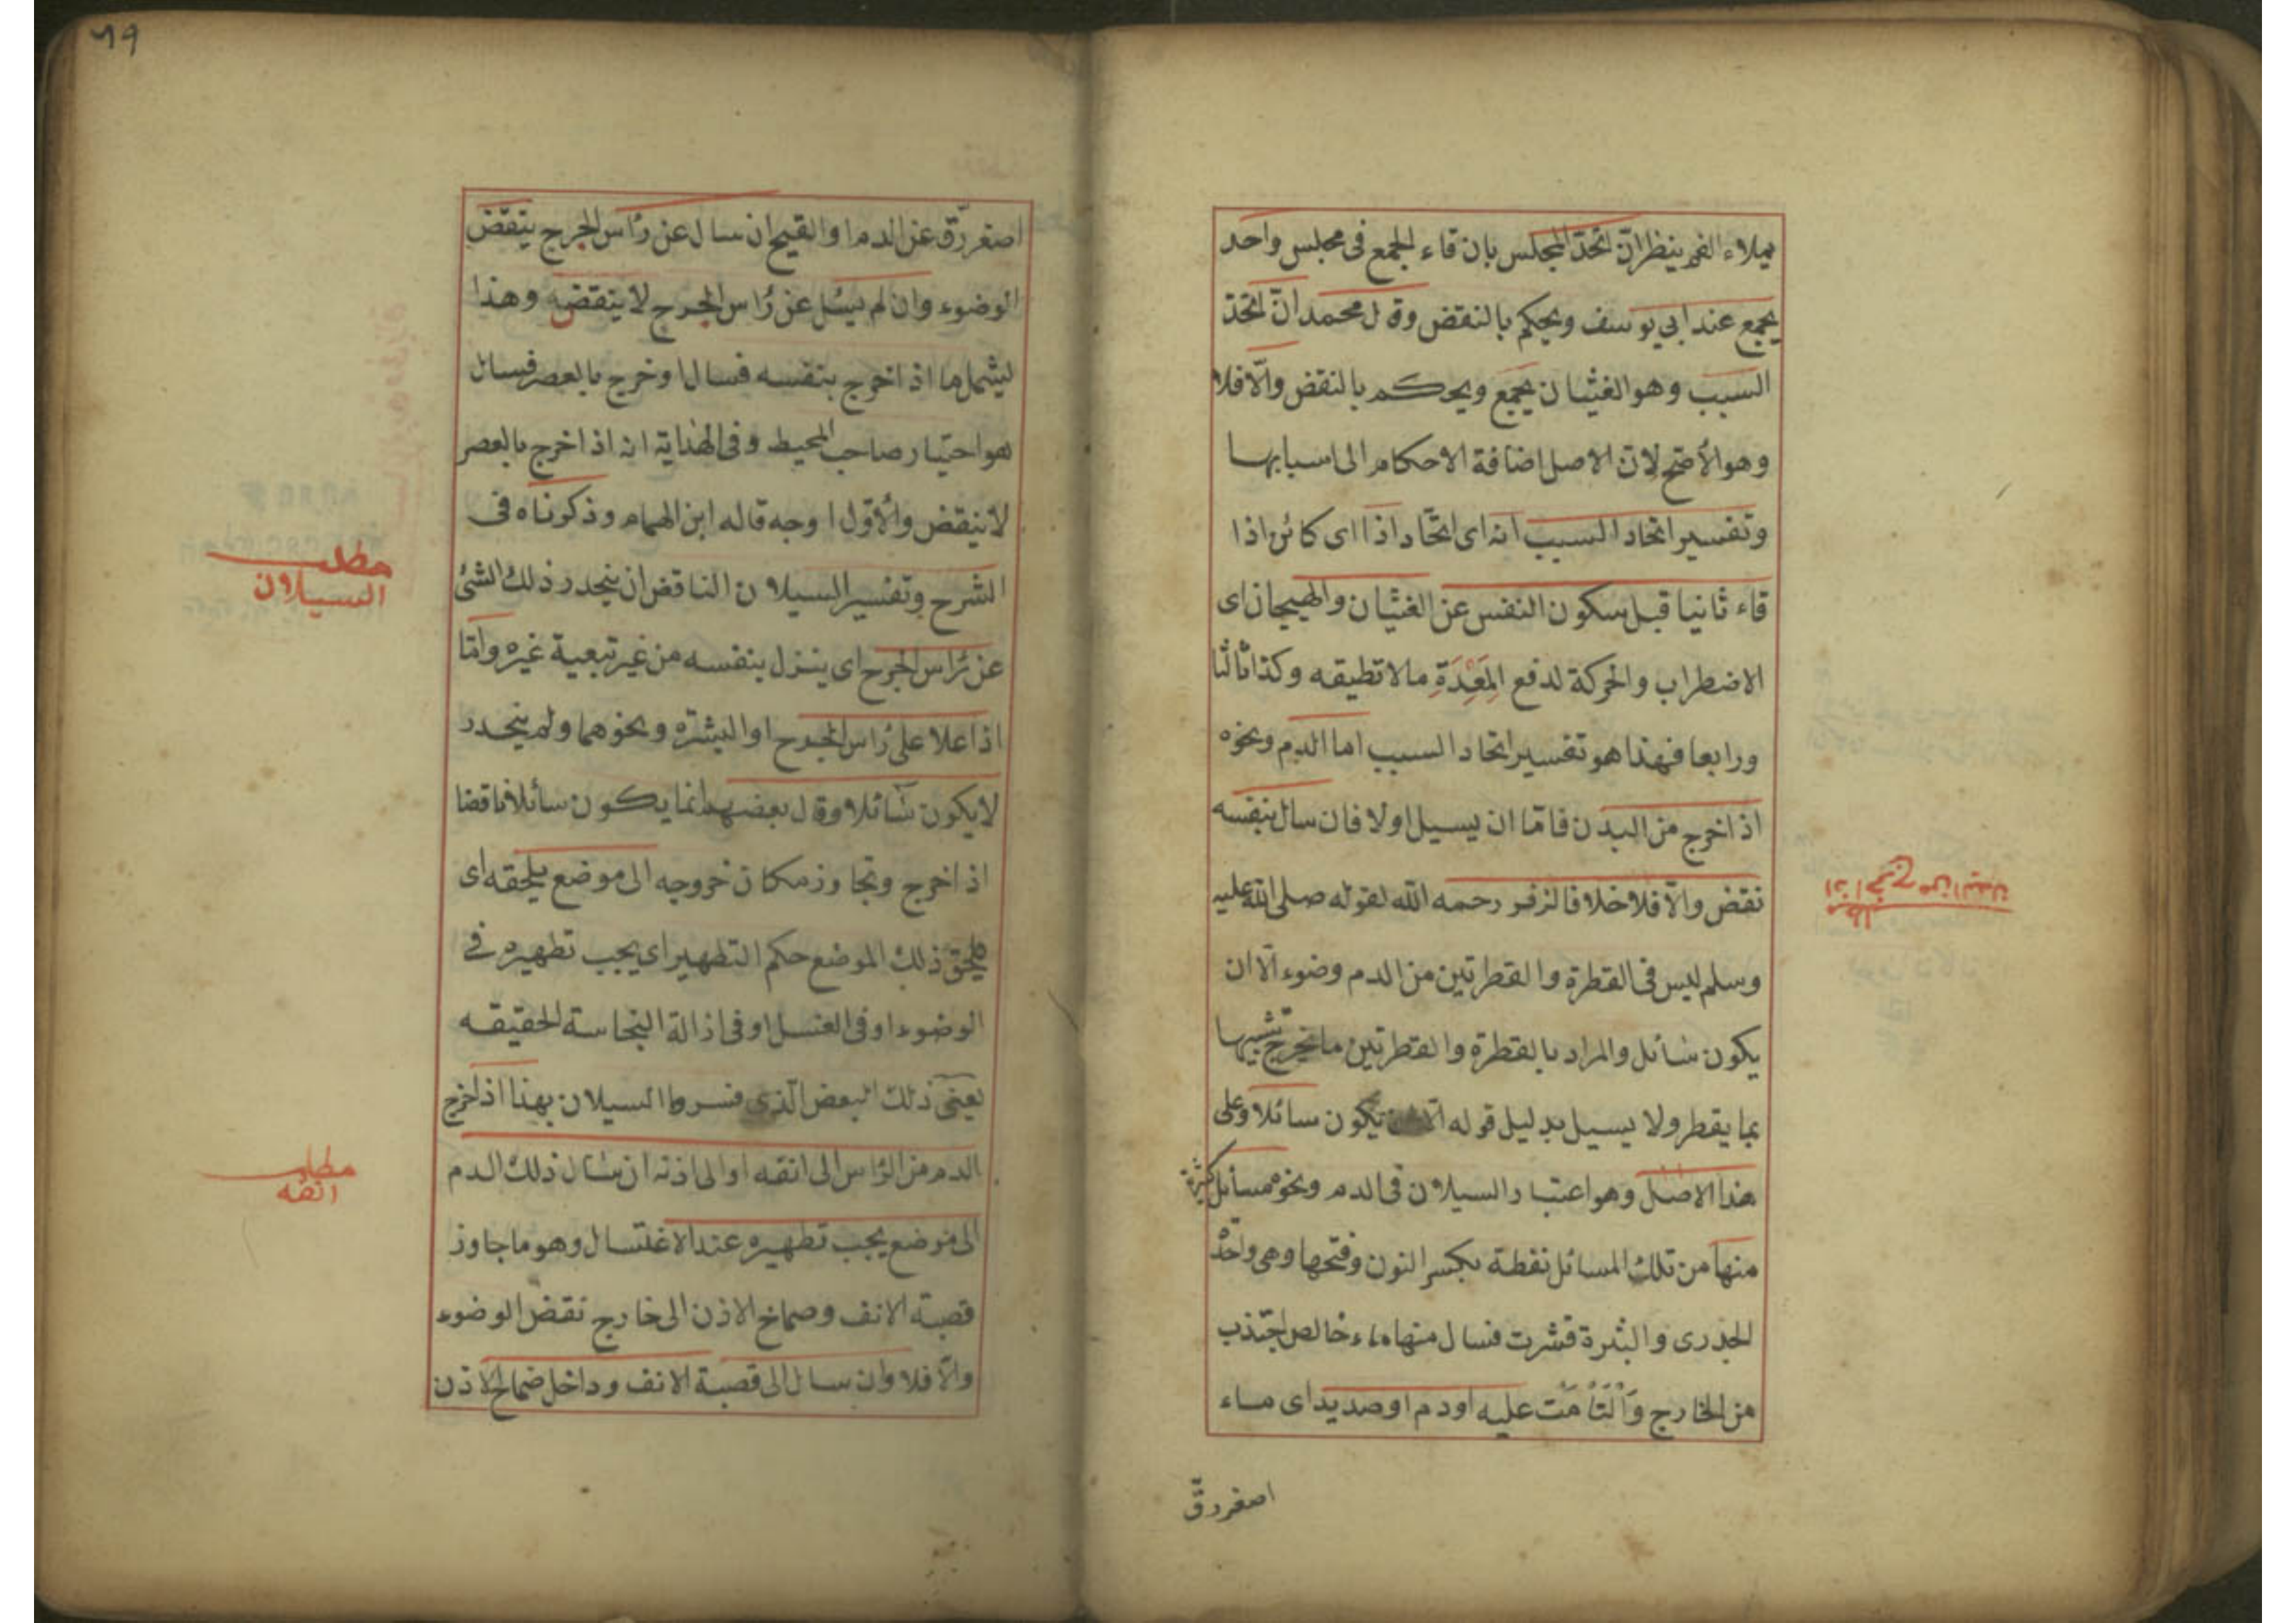 يملاء الفم ينظر ان اتحد المجلس بان قاء الجمع فى مجلس واحد
يجمع عند ابي يوسف ويحكم بالنقض وقال محمد ان اتحد
السبب وهو الغثيان يجمع ويحكم بالنقض والّا فلا
وهو الأصح لان الاصل اضافة الاحكام الى اسبابها
وتفسير اتحاد السبب انه اى اتحاد اذا اى كائن اذا
قاء ثانيا قبل سكون النفس عن الغثيان والهيجان اى
الاضطراب والحركة لدفع المَعِدَةِ مالا تطيقه وكذا ثالثا
ورابعا فهذا هو تفسير اتحاد السبب اما الدم ونحوه
اذا خرج من البدن فامّا ان يسيل اولا فان سال بنفسه
نقض والّا فلا خلافا لزفر رحمه الله لقوله صلى الله عليه
وسلم ليس فى القطرة والقطرتين من الدم وضوء الّا ان
يكون سائل والمراد بالقطرة والقطرتين ما يخرج
بما يقطر ولا يسيل بدليل قوله الّا ان يكون سائلا وعلى
هذا الاصل وهو اعتبار السيلان فى الدم ونحوه مسائل كثيرة
منها من تلك المسائل نفطة بكسر النون وفتحها وهى واحد
الجدرى والبثرة قشرت فسال منها ماء خالص اجتذب
من الخارج وَالْتَأمَت عليه او دم او صديد اى ماء
اصغر رقّ
مطلب
اذا خرج من البدن
٦٩
اصغر رقّ عن الدم او القيح ان سال عن رأس الجرح ينقض
الوضوء وان لم يسئل عن رأس الجرح لا ينقضه وهذا
ليشمل ما اذا خرج بنفسه فسال او خرج بالعصر فسال
هو احتيار صاحب المحيط وفى الهداية انه اذا خرج بالعصر
لا ينقض والأوّل اوجه قاله ابن الهمام وذكرناه فى
الشرح وتفسير السيلان الناقض ان ينحدر ذلك الشئ
عن رأس الجرح اى ينزل بنفسه من غير تبعية غيره وامّا
اذا علا على رأس الجرح او البثرة ونحوهما ولم ينحدر
لا يكون سائلا وقال بعضهم انما يكون سائلا ناقضا
اذا خرج وتجاوز مكان خروجه الى موضع يلحقه اى
يلحق ذلك الموضع حكم التطهير اى يجب تطهيره فى
الوضوء او فى الغسل او فى اذالة النجاسة الحقيقه
يعنى ذلك البعض الّذى فسروا السيلان بهذا اذا خرج
الدم من الرأس الى انفه او الى اذنه ان سال ذلك الدم
الى موضع يجب تطهيره عند الاغتسال وهو ما جاوز
قصبة الانف وصماخ الاذن الى خارج نقض الوضوء
والّا فلا وان سال الى قصبة الانف وداخل صماخ الاذن
مطلب
السيلان
مطلب
انفه